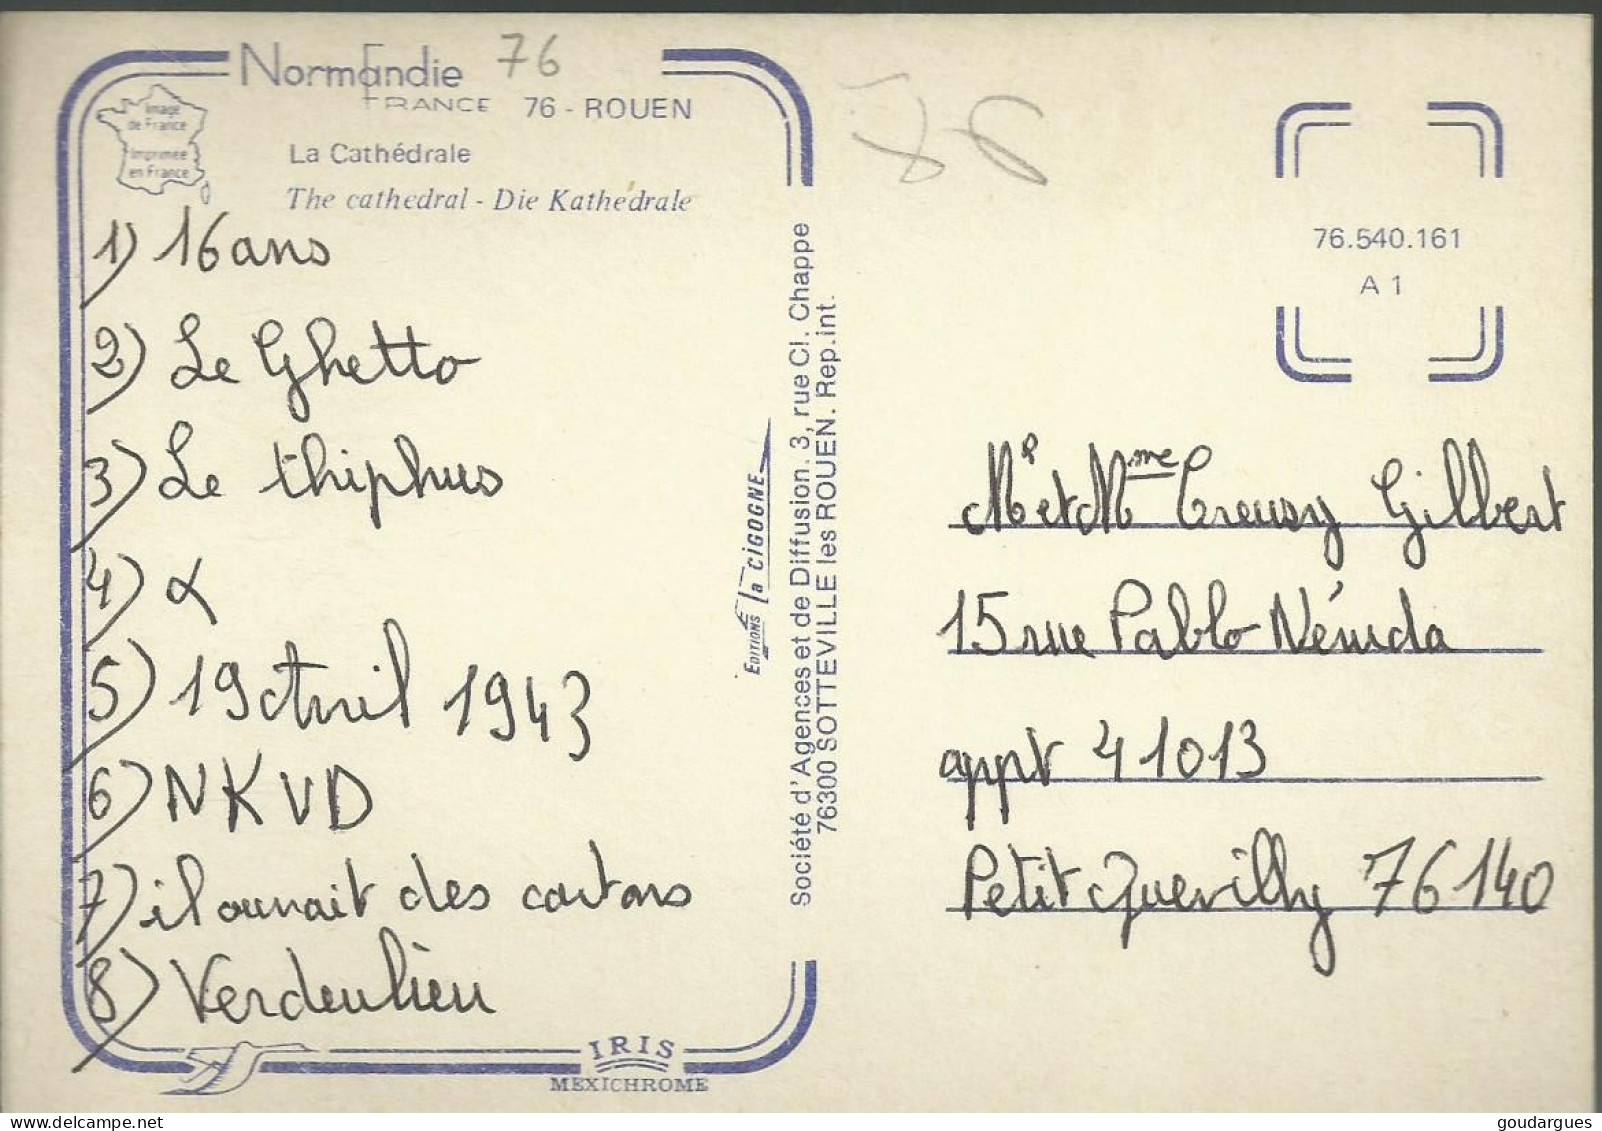 Normandie 76
FRANCE 76 - ROUEN
Image
de France
Imprimée
en France
La Cathédrale
The cathedral - Die Kathedrale
1) 16 ans
2) Le Ghetto
3) Le thiphus
4) α
5) 19 Avril 1943
6) NKVD
7) il ouvrait des cartons
8)
IRIS
MEXICHROME
EDITIONS la CIGOGNE
Société d'Agences et de Diffusion. 3, rue Cl. Chappe
76300 SOTTEVILLE les ROUEN. Rep. int.
76.540.161
A 1
Mr et Mme Creusy Gilbert
15 rue Pablo Néruda
appt 41013
Petit Quevilly 76140
goudargues.com